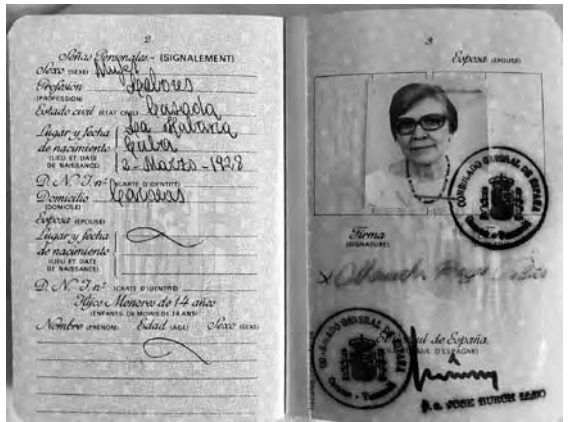 2
Señas Personales.- (SIGNALEMENT)
Sexo (SEXE) Mujer
Profesión Labores
(PROFESSION)
Estado civil (ETAT CIVIL) Casada
Lugar y fecha La Habana
de nacimiento Cuba
(LIEU ET DATE
DE NAISSANCE) 2-Marzo-1928
D. N. I. nº (CARTE D'IDENTITÉ)
Domicilio Caracas
(DOMICILE)
Esposa (EPOUSE)
Lugar y fecha
de nacimiento
(LIEU ET DATE
DE NAISSANCE)
D. N. I. nº (CARTE D'IDENTITE)
Hijos Menores de 14 años
(ENFANTS DE MOINS DE 14 ANS)
Nombre (PRENOM) Edad (AGE) Sexo (SEXE)
3
Esposa (EPOUSE)
CONSULADO GENERAL DE ESPAÑA
Caracas - Venezuela
Firma
(SIGNATURE)
CONSULADO GENERAL DE ESPAÑA
Caracas - Venezuela
El Cónsul de España.
D'ESPAGNE)
p.a. JOSE